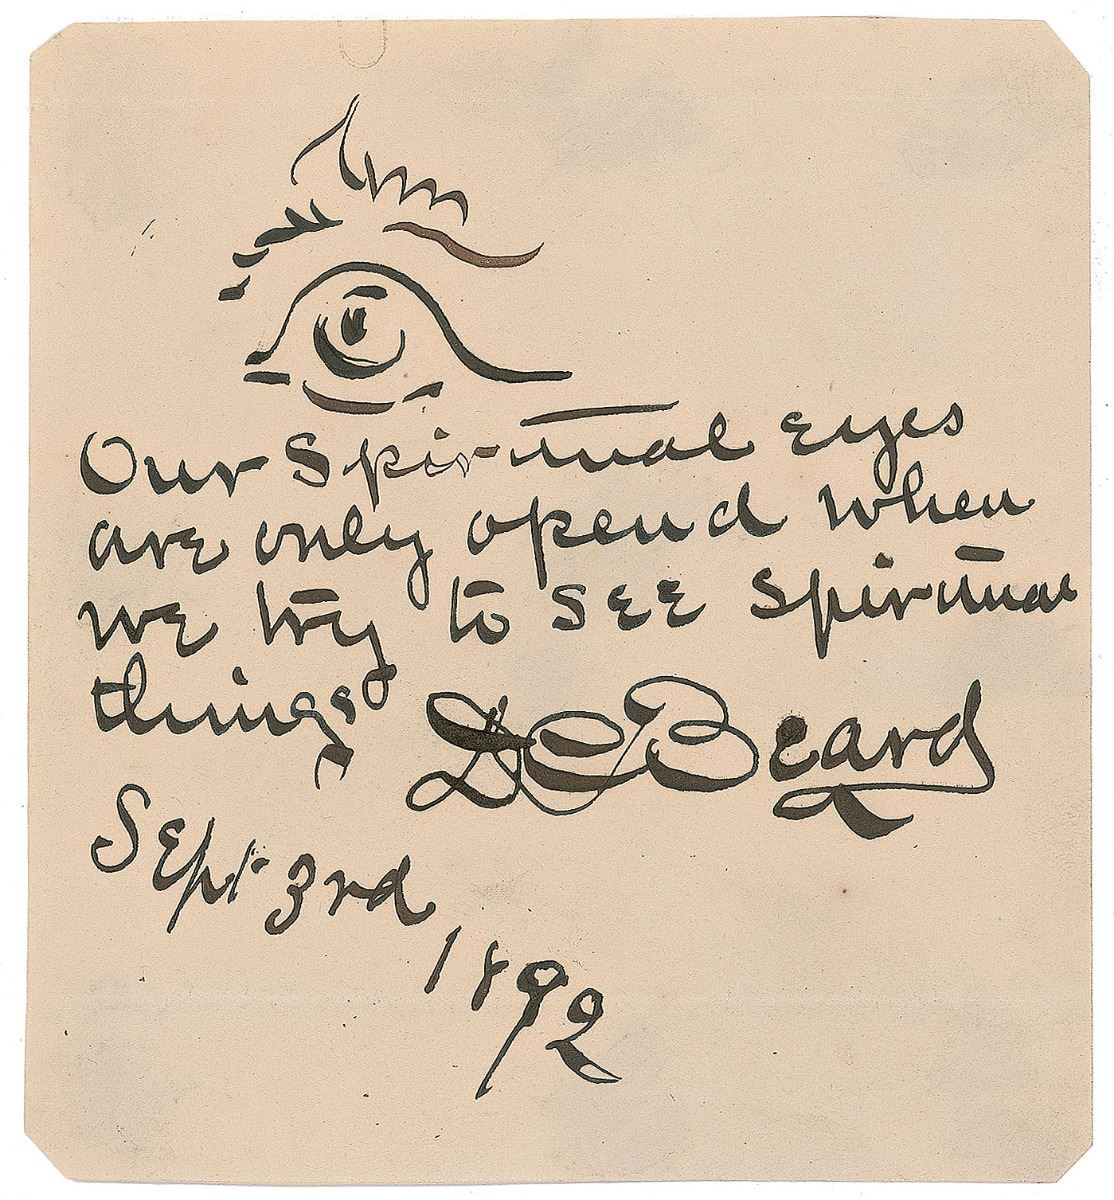 Our Spiritual eyes
are only opend when
we try to see spiritual
things
D C Beard
Sept 3rd
1892